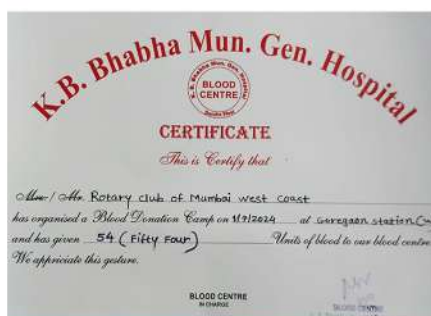 K.B. Bhabha Mun. Gen. Hospital
K. B. Bhabha Mun. Gen. Hospital
BLOOD
CENTRE
CERTIFICATE
This is Certify that
Mrs / Mr. Rotary club of Mumbai west coast
has organised a Blood Donation Camp on 1/7/2024 at Goregaon station
and has given 54 (Fifty Four) Units of blood to our blood centre
We appriciate this gesture.
BLOOD CENTRE
IN CHARGE
BLOOD CENTRE